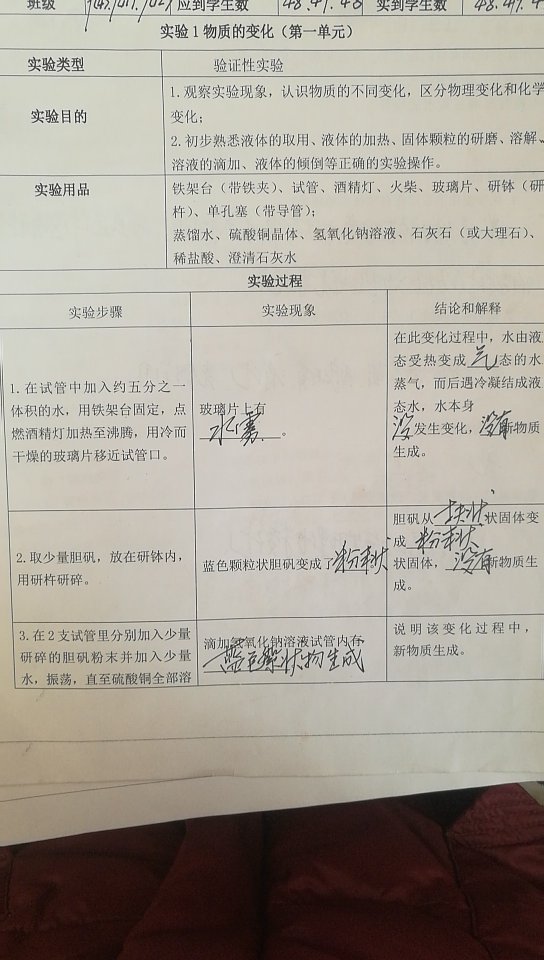 班级 应到学生数 48.47.48 实到学生数 48.47.4
实验1物质的变化（第一单元）
实验类型 验证性实验
实验目的
1.观察实验现象，认识物质的不同变化，区分物理变化和化学
变化；
2.初步熟悉液体的取用、液体的加热、固体颗粒的研磨、溶解、
溶液的滴加、液体的倾倒等正确的实验操作。
实验用品
铁架台（带铁夹）、试管、酒精灯、火柴、玻璃片、研钵（研
杵）、单孔塞（带导管）；
蒸馏水、硫酸铜晶体、氢氧化钠溶液、石灰石（或大理石）、
稀盐酸、澄清石灰水
实验过程
实验步骤 实验现象 结论和解释
1.在试管中加入约五分之一
体积的水，用铁架台固定，点
燃酒精灯加热至沸腾，用冷而
干燥的玻璃片移近试管口。
玻璃片上有
水雾。
在此变化过程中，水由液
态受热变成气态的水
蒸气，而后遇冷凝结成液
态水，水本身
没发生变化，没有新物质
生成。
2.取少量胆矾，放在研钵内，
用研杵研碎。
蓝色颗粒状胆矾变成了粉末状
胆矾从块状状固体变
成粉末状
状固体，没有新物质生
成。
3.在2支试管里分别加入少量
研碎的胆矾粉末并加入少量
水，振荡，直至硫酸铜全部溶
滴加氢氧化钠溶液试管内有
蓝色絮状物生成
说明该变化过程中，
新物质生成。